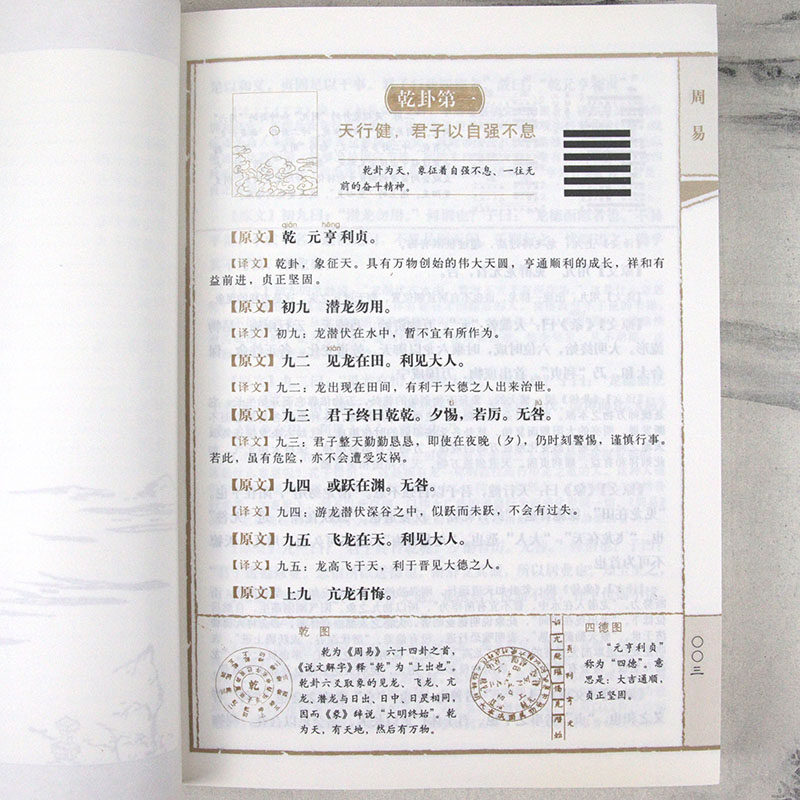 周易
乾卦第一
天行健，君子以自强不息
乾卦为天，象征着自强不息、一往无
前的奋斗精神。
qián hēng
【原文】乾 元亨利贞。
【译文】乾卦，象征天。具有万物创始的伟大天圆，亨通顺利的成长，祥和有
益前进，贞正坚固。
【原文】初九 潜龙勿用。
【译文】初九：龙潜伏在水中，暂不宜有所作为。
xiàn
【原文】九二 见龙在田。利见大人。
【译文】九二：龙出现在田间，有利于大德之人出来治世。
tì jiù
【原文】九三 君子终日乾乾。夕惕，若厉。无咎。
【译文】九三：君子整天勤勤恳恳，即使在夜晚（夕），仍时刻警惕，谨慎行事。
若此，虽有危险，亦不会遭受灾祸。
【原文】九四 或跃在渊。无咎。
【译文】九四：游龙潜伏深谷之中，似跃而未跃，不会有过失。
【原文】九五 飞龙在天。利见大人。
【译文】九五：龙高飞于天，利于晋见大德之人。
【原文】上九 亢龙有悔。
乾图
乾为《周易》六十四卦之首，
《说文解字》释“乾”为“上出也”。
乾卦六爻取象的见龙、飞龙、亢
龙、潜龙与日出、日中、日昃相同，
因而《彖》辞说“大明终始”。乾
为天，有天地，然后有万物。
乾
四德图
“元亨利贞”
称为“四德”。意
思是：大吉通顺，
贞正坚固。
〇〇三